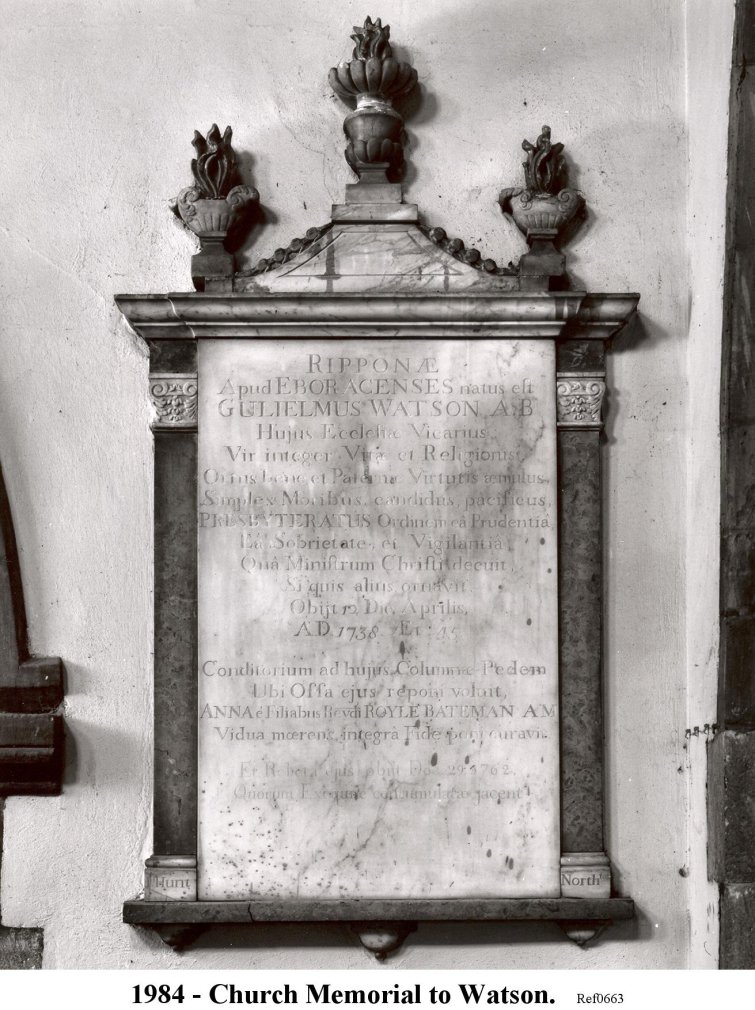 RIPPONÆ
Apud EBORACENSES natus eſt
GULIELMUS WATSON A:B
Hujus Eccleſiæ Vicarius
Vir integer Vitæ et Religionis,
Ortus bene et Paternæ Virtutis æmulus,
Simplex Moribus, candidus, pacificus,
PRESBYTERATUS Ordinem eâ Prudentiâ
Eâ Sobrietate et Vigilantiâ
Quâ Miniſtrum Chriſti decuit,
Si quis alius ornavit
Obijt 12 Die Aprilis,
A.D. 1738. Æt: 45
Conditorium ad hujus Columnæ Pedem
Ubi Oſſa ejus reponi voluit,
ANNA è Filiabus Revdi ROYLE BATEMAN AM
Vidua mœrens, integrâ Fide poni curavit.
Et ejus obiit 29 1762.
Quorum Exuviæ jacent
Hunt
North
1984 - Church Memorial to Watson. Ref0663